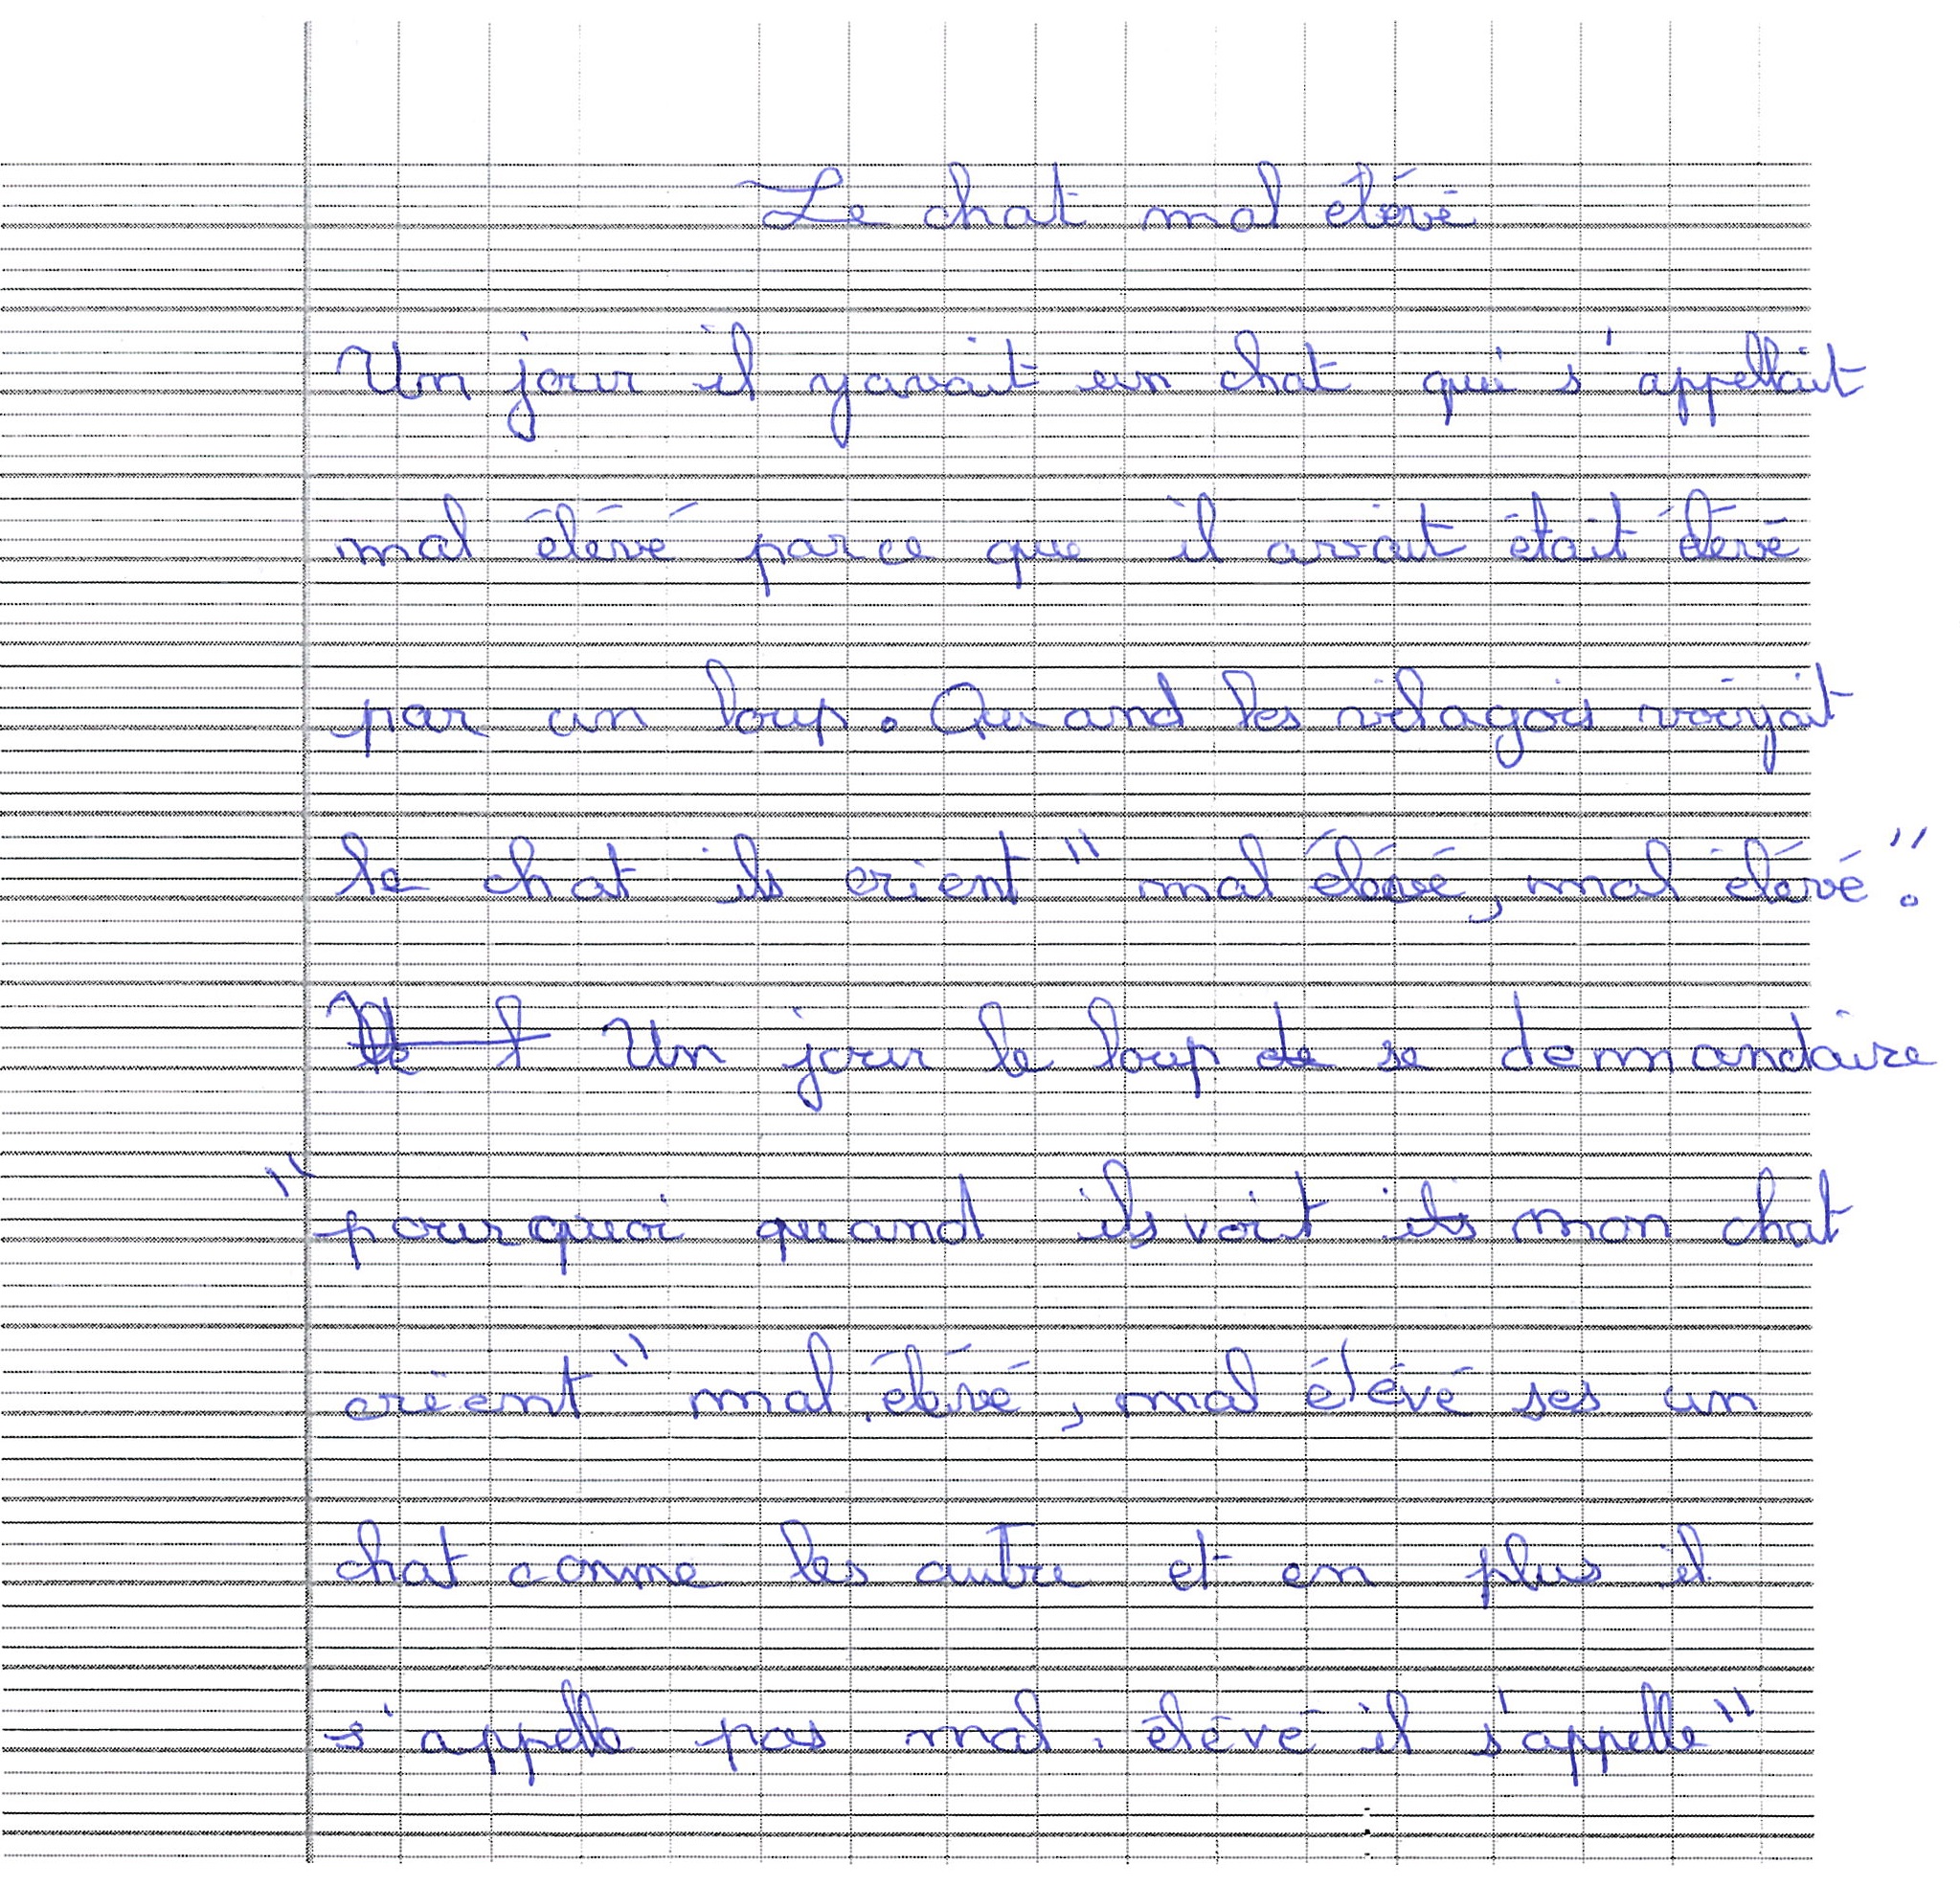 Le chat mal élévé
Un jour il yavait un chat qui s'appellait
mal élévé parce que il avait était élévé
par un loup. Quand les vilagois voiyait
le chat ils crient " mal élévé, mal élévé".
Un jour le loup de se demandaire
"pourquoi quand ils voit ils mon chat
crient" mal élévé, mal élévé ses un
chat comme les autre et en plus il
s'appelle pas mal élévé il s'appelle"